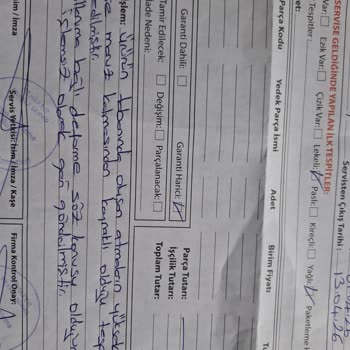 SERVİSE GELDİĞİNDE YAPILAN İLK TESPİTLER:
Var: Ezik Var: Çizik Var: Lekeli: Paslı: Kireçli: Yağlı: Paketleme
Servisten Çıkış Tarihi :
13.04.26
Parça Kodu Yedek Parça İsmi Adet Birim Fiyatı
Garanti Dahili: Garanti Harici:
Parça Tutarı:
İşçilik Tutarı:
Toplam Tutar:
Tamir Edilecek: Değişim: Parçalanacak:
İade Nedeni:
İşlem: ürünün tabanında oluşan atmaların yüksek
maruz kalmasından kaynaklı olduğu
edilmiştir.
bağlı deforme söz konusu
işlemsiz olarak geri gönderilmiştir.
Servis Yetkilisi: İsim / İmza / Kaşe
Firma Kontrol Onay: